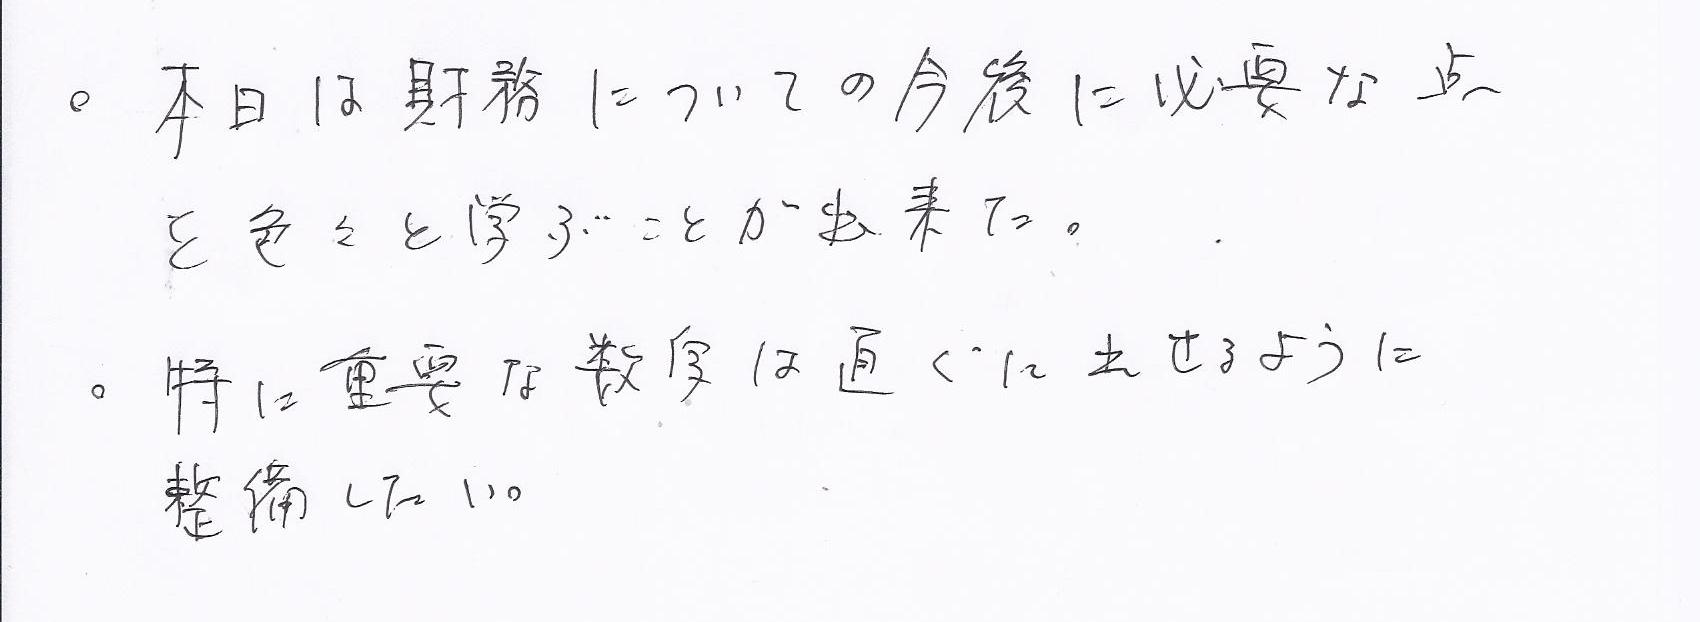 。本日は財務についての今後に必要な点
を色々と学ぶことが出来た。
。特に重要な数字は直ぐに出せるように
整備したい。